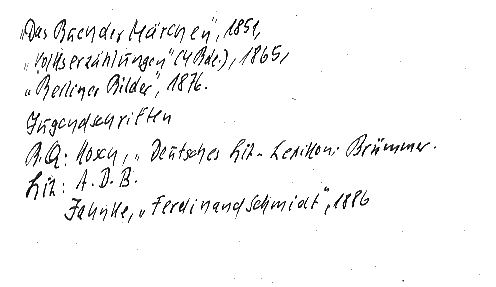 „Das Buch der Märchen", 1851,
„Volkserzählungen" (4 Bde.), 1865,
„Berliner Bilder", 1876.
Jugendschriften
B.Q: Kosch, „Deutsches Lit.-Lexikon; Brümmer.
Lit: A.D.B.
Jahnke, „Ferdinand Schmidt", 1886